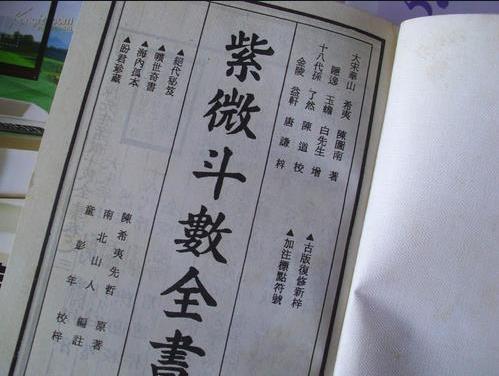 大宋華山 希夷 陳圖南 著
隱逸 玉蟾 白先生 增
十八代孫 了然 陳道 校
金陵 益軒 唐謙 梓
▲古版復修新梓
▲加注標點符號
紫微斗數全書
▲絕代秘笈
▲曠世奇書
▲海內孤本
▲盼君珍藏
陳希夷先哲 原著
南北山人 編註
童彭年 校梓